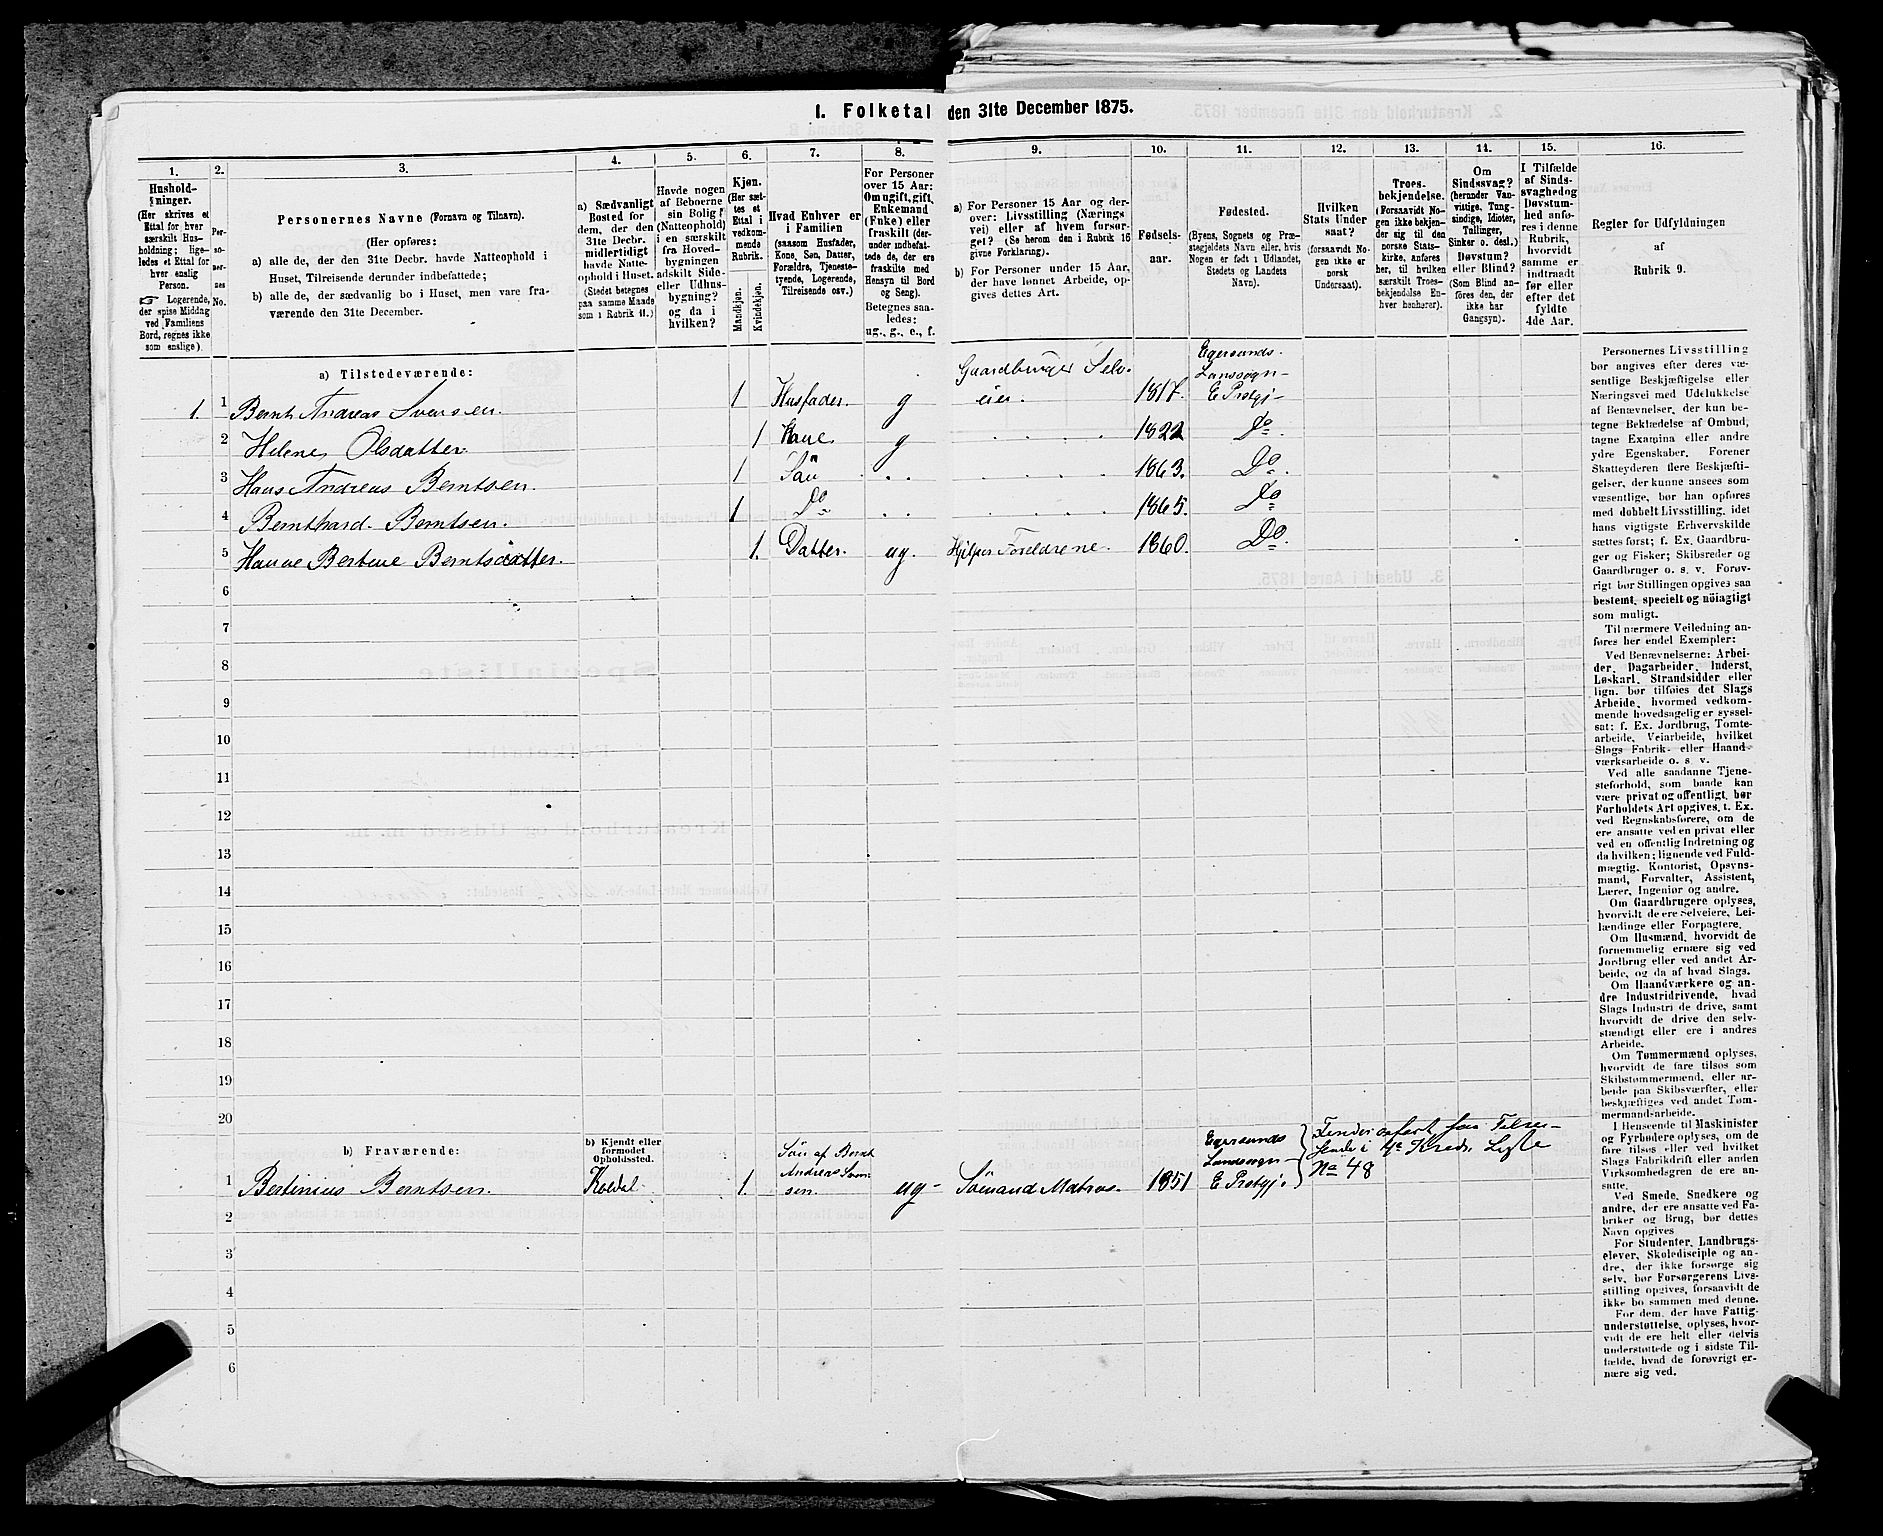 I. Folketal den 31te December 1875.
1. 2. 3. 4. 5. 6. 7. 8. 9. 10. 11. 12. 13. 14. 15. 16.
Hushold-
ninger.
(Her skrives et
Ettal for hver
særskilt Hus-
holdning; lige-
ledes et Ettal for
hver enslig
Person.
☞ Logerende,
der spise Middag
ved Familiens
Bord, regnes ikke
som enslige).
Per-
so-
ner-
nes
No.
Personernes Navne (Fornavn og Tilnavn).
(Her opføres:
a) alle de, der den 31te Decbr. havde Natteophold i
Huset, Tilreisende derunder indbefattede;
b) alle de, der sædvanlig bo i Huset, men vare fra-
værende den 31te December.
a) Sædvanligt
Bosted for
dem, der den
31te Decbr.
midlertidigt
havde Natte-
ophold i Huset.
(Stedet betegnes
paa samme Maade
som i Rubrik 11.)
Havde nogen
af Beboerne
sin Bolig
(Natteophold)
i en særskilt
fra Hoved-
bygningen
adskilt Side-
eller Udhus-
bygning?
og da i
hvilken?
Kjøn.
(Her sæt-
tes et
Ettal i
vedkom-
mende
Rubrik.
Mandkjøn.
Kvindekjøn.
Hvad Enhver er
i Familien
(saasom Husfader,
Kone, Søn, Datter,
Forældre, Tjeneste-
tyende, Logerende,
Tilreisende osv.)
For Personer
over 15 Aar:
Om ugift, gift,
Enkemand
(Enke) eller
fraskilt (der-
under indbefat-
tede de, der ere
fraskilte med
Hensyn til Bord
og Seng).
Betegnes saa-
ledes:
ug., g., e., f.
a) For Personer 15 Aar og der-
over: Livsstilling (Nærings
vei) eller af hvem forsør-
get? (Se herom den i Rubrik 16
givne Forklaring).
b) For Personer under 15 Aar,
der have lønnet Arbeide, op-
gives dettes Art.
Fødsels-
aar.
Fødested.
(Byens, Sognets og Præ-
stegjeldets Navn eller, hvis
Nogen er født i Udlandet,
Stedets og Landets
Navn).
Hvilken
Stats Under
saat?
(forsaavidt No-
gen ikke er
norsk
Undersaat).
Troes-
bekjendelse.
(Forsaavidt No-
gen ikke bekjen-
der sig til den
norske Stats-
kirke, anføres
her, til hvilken
særskilt Troes-
bekjendelse En-
hver henhører).
Om
Sindssvag?
(herunder Van-
vittige, Tung-
sindige, Idioter,
Tullinger,
Sinker o. desl.)
Døvstum?
eller Blind?
(Som Blind an-
føres den, der
ikke har
Gangsyn).
I Tilfælde
af Sinds-
svaghed og
Døvstum-
hed anfø-
res i denne
Rubrik,
hvorvidt
samme er
indtraadt
før eller
efter det
fyldte
4de Aar.
Regler for Udfyldningen
af
Rubrik 9.
a) Tilstedeværende:
1. 1 Bernt Andreas Svensen 1 Husfader. g Gaardbruger Selv-
eier. 1817. Egersunds
Landsogn
E Prstgj
2 Helene Olsdatter. 1 Kone g 1822 Do.
3 Hans Andreas Berntsen. 1 Søn 1863. Do.
4 Bernthard Berntsen. 1 Do 1865. Do
5 Hanne Bertine Berntsdatter. 1. Datter. ug. Hjelper Foreldrene. 1860. Do
6
7
8
9
10
11
12
13
14
15
16
17
18
19
20
b) Fraværende:
b) Kjendt eller
formodet
Opholdssted.
1 Bertinius Berntsen. Koldal 1. Søn af Bernt
Andreas Sven-
sen. ug Sømand Matros. 1851 Egersunds
Landsogn
E Prstgj.
Na 48
2
3
4
5
6
Personernes Livsstilling
bør angives efter deres væ-
sentlige Beskjæftigelse eller
Næringsvei med Udelukkelse
af Benævnelser, der kun be-
tegne Beklædelse af Ombud,
tagne Examina eller andre
ydre Egenskaber. Forener
Skatteyderen flere Beskjæfti-
gelser, der kunne ansees som
væsentlige, bør han opføres
med dobbelt Livsstilling, idet
hans vigtigste Erhvervskilde
sættes først; f. Ex. Gaardbru-
ger og Fisker; Skibsreder og
Gaardbruger o. s. v. Forøv-
rigt bør Stillingen opgives saa
bestemt, specielt og nøiagtigt
som muligt.
Til nærmere Veiledning an-
føres her endel Exempler:
Ved Benævnelserne: Arbei-
der, Dagarbeider, Inderst,
Løskarl, Strandsidder eller
lign. bør tilføies det Slags
Arbeide, hvormed vedkom-
mende hovedsagelig er syssel-
sat; f. Ex. Jordbrug, Tomte-
arbeide, Veiarbeide, hvilket
Slags Fabrik- eller Haand-
værksarbeide o. s. v.
Ved alle saadanne Tjene-
steforhold, som baade kan
være privat og offentligt, bør
Forholdets Art opgives, t. Ex.
ved Regnskabsførere, om de
ere ansatte ved en privat eller
ved en offentlig Indretning og
da hvilken; lignende ved Fuld-
mægtig, Kontorist, Opsyns-
mand, Forvalter, Assistent,
Lærer, Ingeniør og andre.
Om Gaardbrugere oplyses,
hvorvidt de ere Selveiere, Lei-
lændinge eller Forpagtere.
Om Husmænd, hvorvidt de
fornemmelig ernære sig ved
Jordbrug eller ved andet Ar-
beide, og da af hvad Slags.
Om Haandværkere og an-
dre Industridrivende, hvad
Slags Industri de drive, samt
hvorvidt de drive den selv-
stændigt eller ere i andres
Arbeide.
Om Tømmermænd oplyses,
hvorvidt de fare tilsøs som
Skibstømmermænd, eller ar-
beide paa Skibsværfter, eller
beskjæftiges ved andet Tøm-
mermand-arbeide.
I Henseende til Maskinister
og Fyrbødere oplyses, om de
fare tilsøs eller ved hvilket
Slags Fabrikdrift eller anden
Virksomhedsgren de ere an-
satte.
Ved Smede, Snedkere og
andre, der ere ansatte ved Fa-
briker og Brug, bør dettes
Navn opgives
For Studenter, Landbrugs-
elever, Skoledisciple og an-
dre, der ikke forsørge sig
selv, bør Forsørgerens Livs-
stilling opgives, forsaavidt de
ikke bo sammen med denne.
For dem, der have Fattig-
understøttelse, oplyses, hvor-
vidt de ere helt eller delvis
understøttede og i sidste Til-
fælde, hvad de forøvrigt er-
nære sig ved.